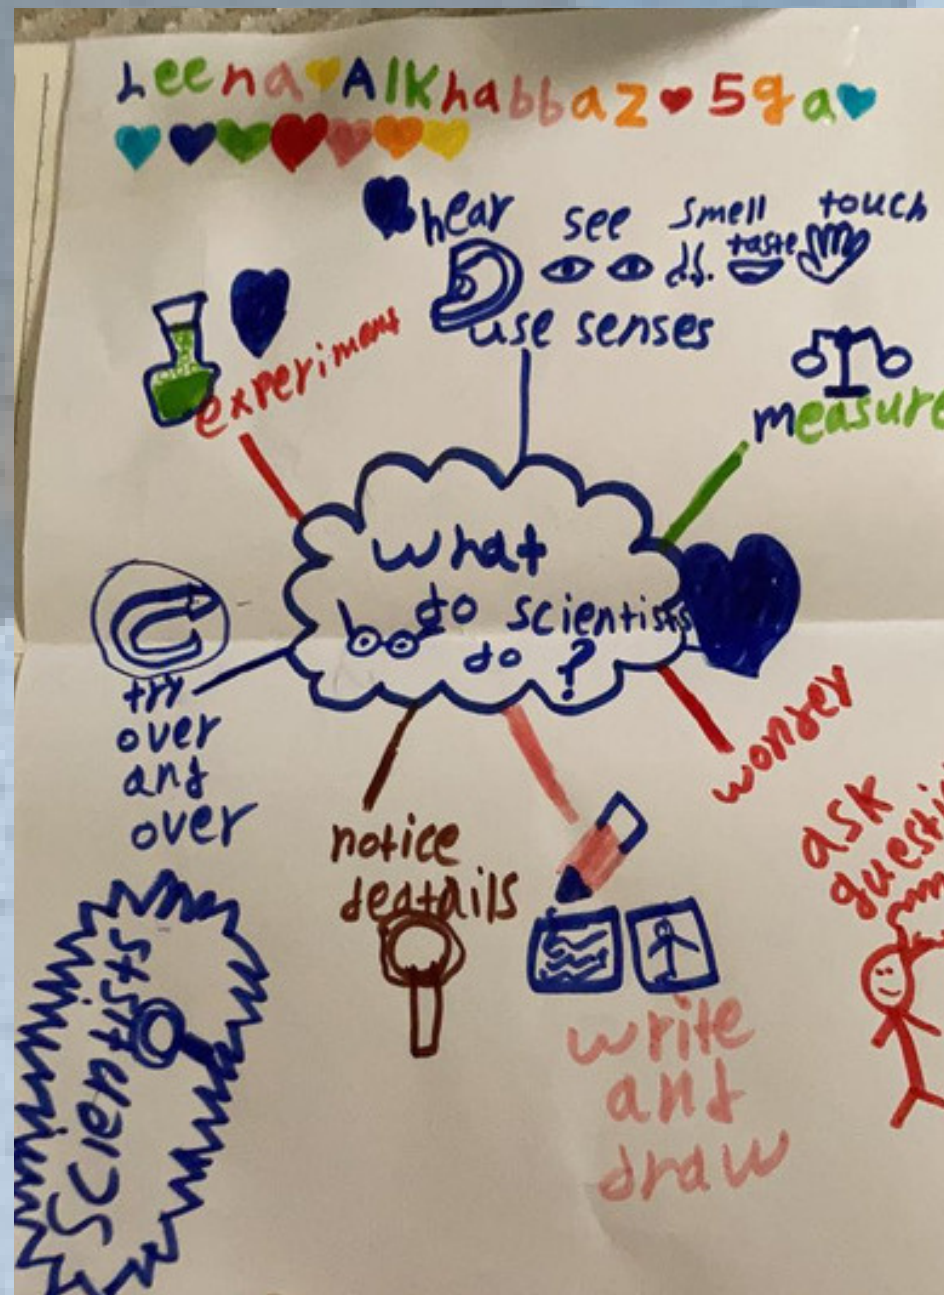 Leena Alkhabbaz 5ga
hear see smell taste touch
use senses
experiment
measure
What
do scientists
do ?
try
over
and
over
notice
deatails
write
and
draw
wonder
ask
Scientists